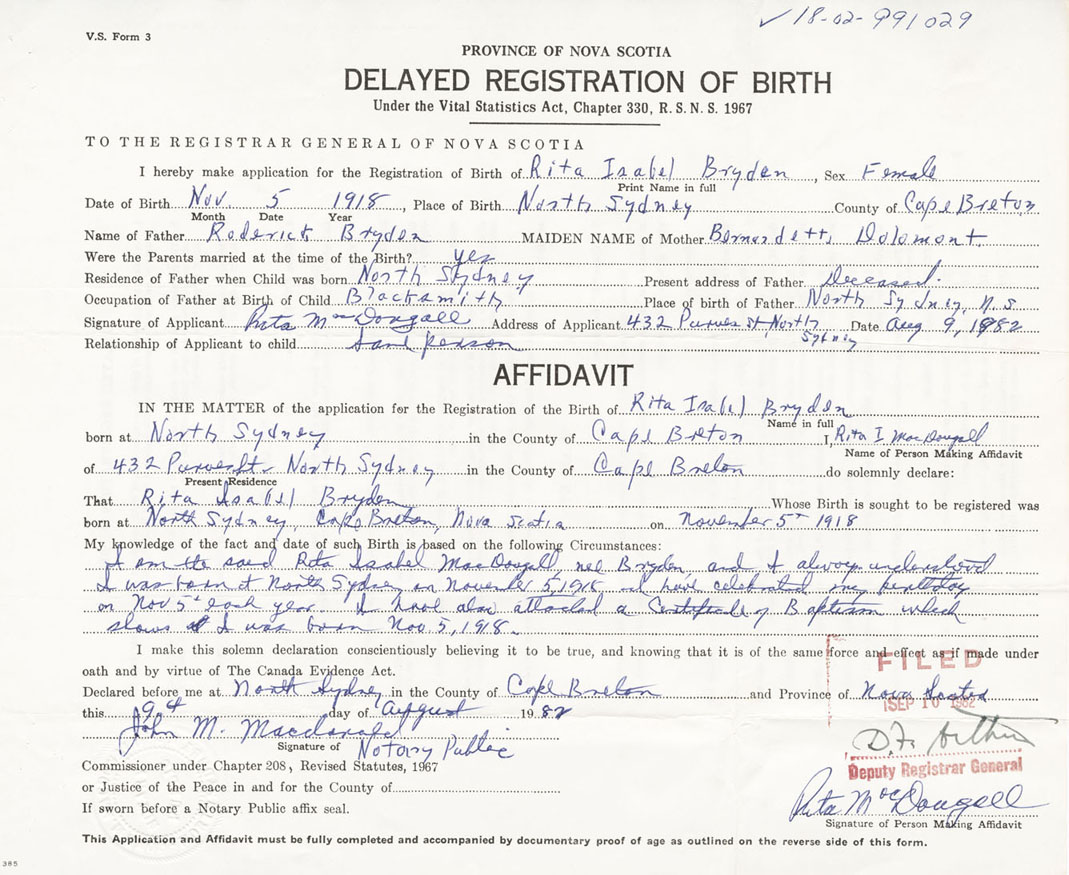 ✓18-02-991029
V.S. Form 3
PROVINCE OF NOVA SCOTIA
DELAYED REGISTRATION OF BIRTH
Under the Vital Statistics Act, Chapter 330, R. S. N. S. 1967
TO THE REGISTRAR GENERAL OF NOVA SCOTIA
I hereby make application for the Registration of Birth of Rita Isabel Bryden, Sex Female
Print Name in full
Date of Birth Nov. 5 1918, Place of Birth North Sydney County of Cape Breton
Month Date Year
Name of Father Roderick Bryden MAIDEN NAME of Mother Bernardette Dolomont
Were the Parents married at the time of the Birth? yes
Residence of Father when Child was born North Sydney Present address of Father Deceased.
Occupation of Father at Birth of Child Blacksmith Place of birth of Father North Sydney, N.S.
Signature of Applicant Rita MacDougall Address of Applicant 432 Purves St North Sydney Date Aug 9, 1982
Relationship of Applicant to child same person
AFFIDAVIT
IN THE MATTER of the application for the Registration of the Birth of Rita Isabel Bryden
Name in full
born at North Sydney in the County of Cape Breton I, Rita I MacDougall
Name of Person Making Affidavit
of 432 Purves St North Sydney in the County of Cape Breton do solemnly declare:
Present Residence
That Rita Isabel Bryden Whose Birth is sought to be registered was
born at North Sydney, Cape Breton, Nova Scotia on November 5th 1918
My knowledge of the fact and date of such Birth is based on the following Circumstances:
I am the said Rita Isabel MacDougall, nee Bryden, and I always understood
I was born at North Sydney on November 5, 1918 I have celebrated my birthday
on Nov 5th each year. I have also attached a Certificate of Baptism which
shows I was born Nov. 5, 1918.
I make this solemn declaration conscientiously believing it to be true, and knowing that it is of the same force and effect as if made under
oath and by virtue of The Canada Evidence Act.
FILED
Declared before me at North Sydney in the County of Cape Breton and Province of Nova Scotia
SEP 10 1982
this 9th day of August 1982
John M. Macdonald
D.F. Arthur
Signature of Notary Public
Commissioner under Chapter 208, Revised Statutes, 1967
Deputy Registrar General
or Justice of the Peace in and for the County of
Rita MacDougall
If sworn before a Notary Public affix seal.
Signature of Person Making Affidavit
This Application and Affidavit must be fully completed and accompanied by documentary proof of age as outlined on the reverse side of this form.
385